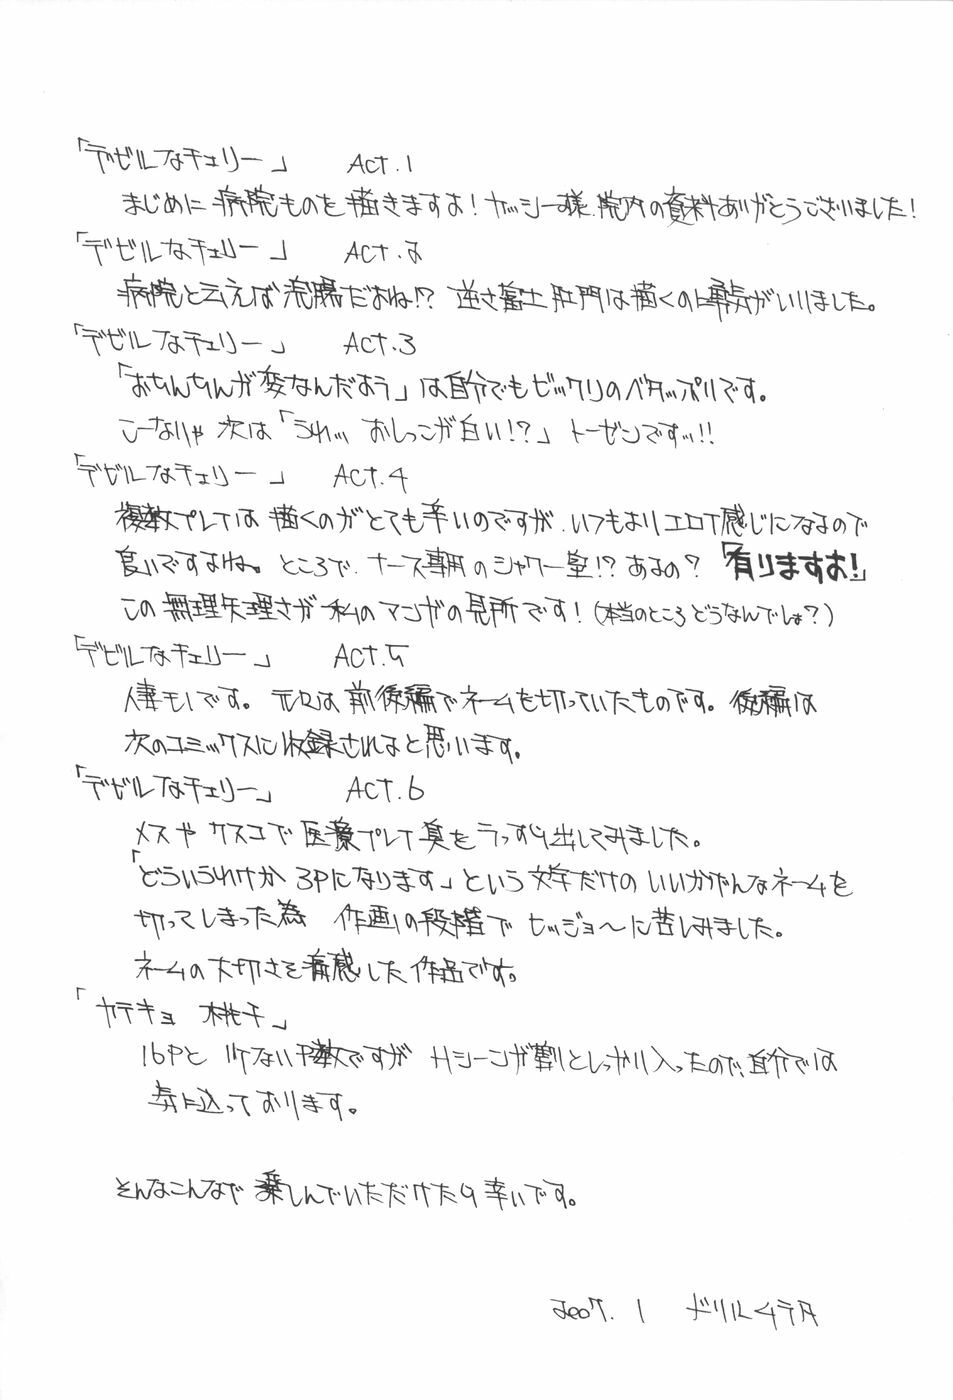 「デビルなチェリー」　Act.1
まじめに病院ものを描きますよ！ヤッシー様、院内の資料ありがとうございました！
「デビルなチェリー」　Act.2
病院と云えば浣腸だよね!? 逆さ富士肛門は描くのに勇気がいりました。
「デビルなチェリー」　Act.3
「おちんちんが変なんだよう」は自分でもビックリのベタッぷりです。
こーなりゃ次は「うわッ おしっこが白い!?」トーゼンですッ!!
「デビルなチェリー」　Act.4
複数プレイは描くのがとても辛いのですが、いつもよりエロイ感じになるので
良いですよね。ところで、ナース専用のシャワー室!? あるの？「有りますよ！」
この無理矢理さが私のマンガの見所です！（本当のところどうなんでしょ？）
「デビルなチェリー」　Act.5
人妻モノです。元々は前後編でネームを切っていたものです。後編は
次のコミックスに収録されると思います。
「デビルなチェリー」　Act.6
メスやクスコで医療プレイ臭をうっすら出してみました。
「どういうわけか3Pになります」という文字だけのいいかげんなネームを
切ってしまった為　作画の段階でヒッジョ〜に苦しみました。
ネームの大切さを痛感した作品です。
「カテキョ　桃子」
16Pと少ないP数ですがHシーンが割としっかり入ったので、自分では
気に込っております。
そんなこんなで楽しんでいただけたら幸いです。
2007.1　ドリルムラタ